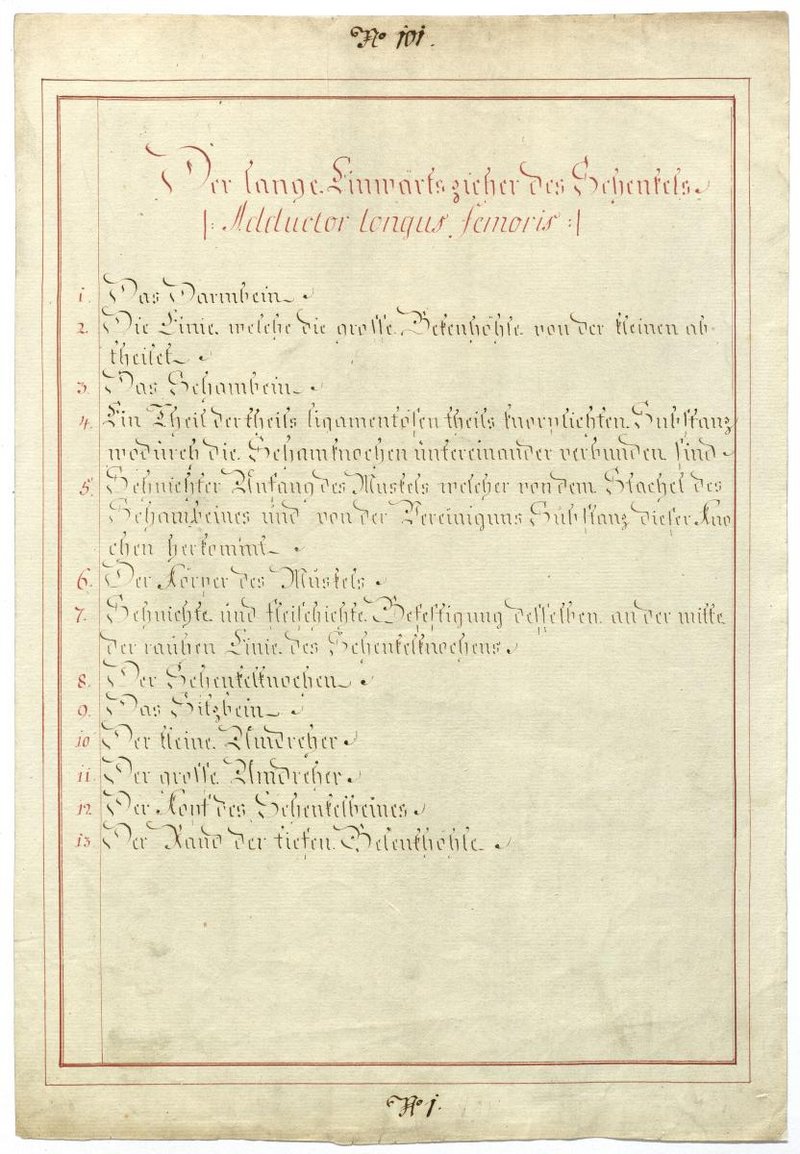 No 101.
Der lange Einwärtszieher des Schenkels
|: Adductor longus femoris :|
1. Das Darmbein
2. Die Linie welche die grosse Bekenhöhle von der kleinen ab
theilet
3. Das Schambein
4. Ein Theil der theils ligamentösen theils knorplichten Substanz
wodurch die Schamknochen untereinander verbunden sind
5. Sehnichter Anfang des Muskels welcher von dem Stachel des
Schambeines und von der Vereinigungs Substanz dieser Kno
chen herkommt
6. Der Körper des Muskels
7. Sehnichte und fleischichte Befestigung desselben an der mitte
der rauhen Linie des Schenkelknochens
8. Der Schenkelknochen
9. Das Sitzbein
10 Der kleine Umdreher
11. Der grosse Umdreher
12 Der Kopf des Schenkelbeines
13 Der Rand der tiefen Gelenkhöhle
No 1.